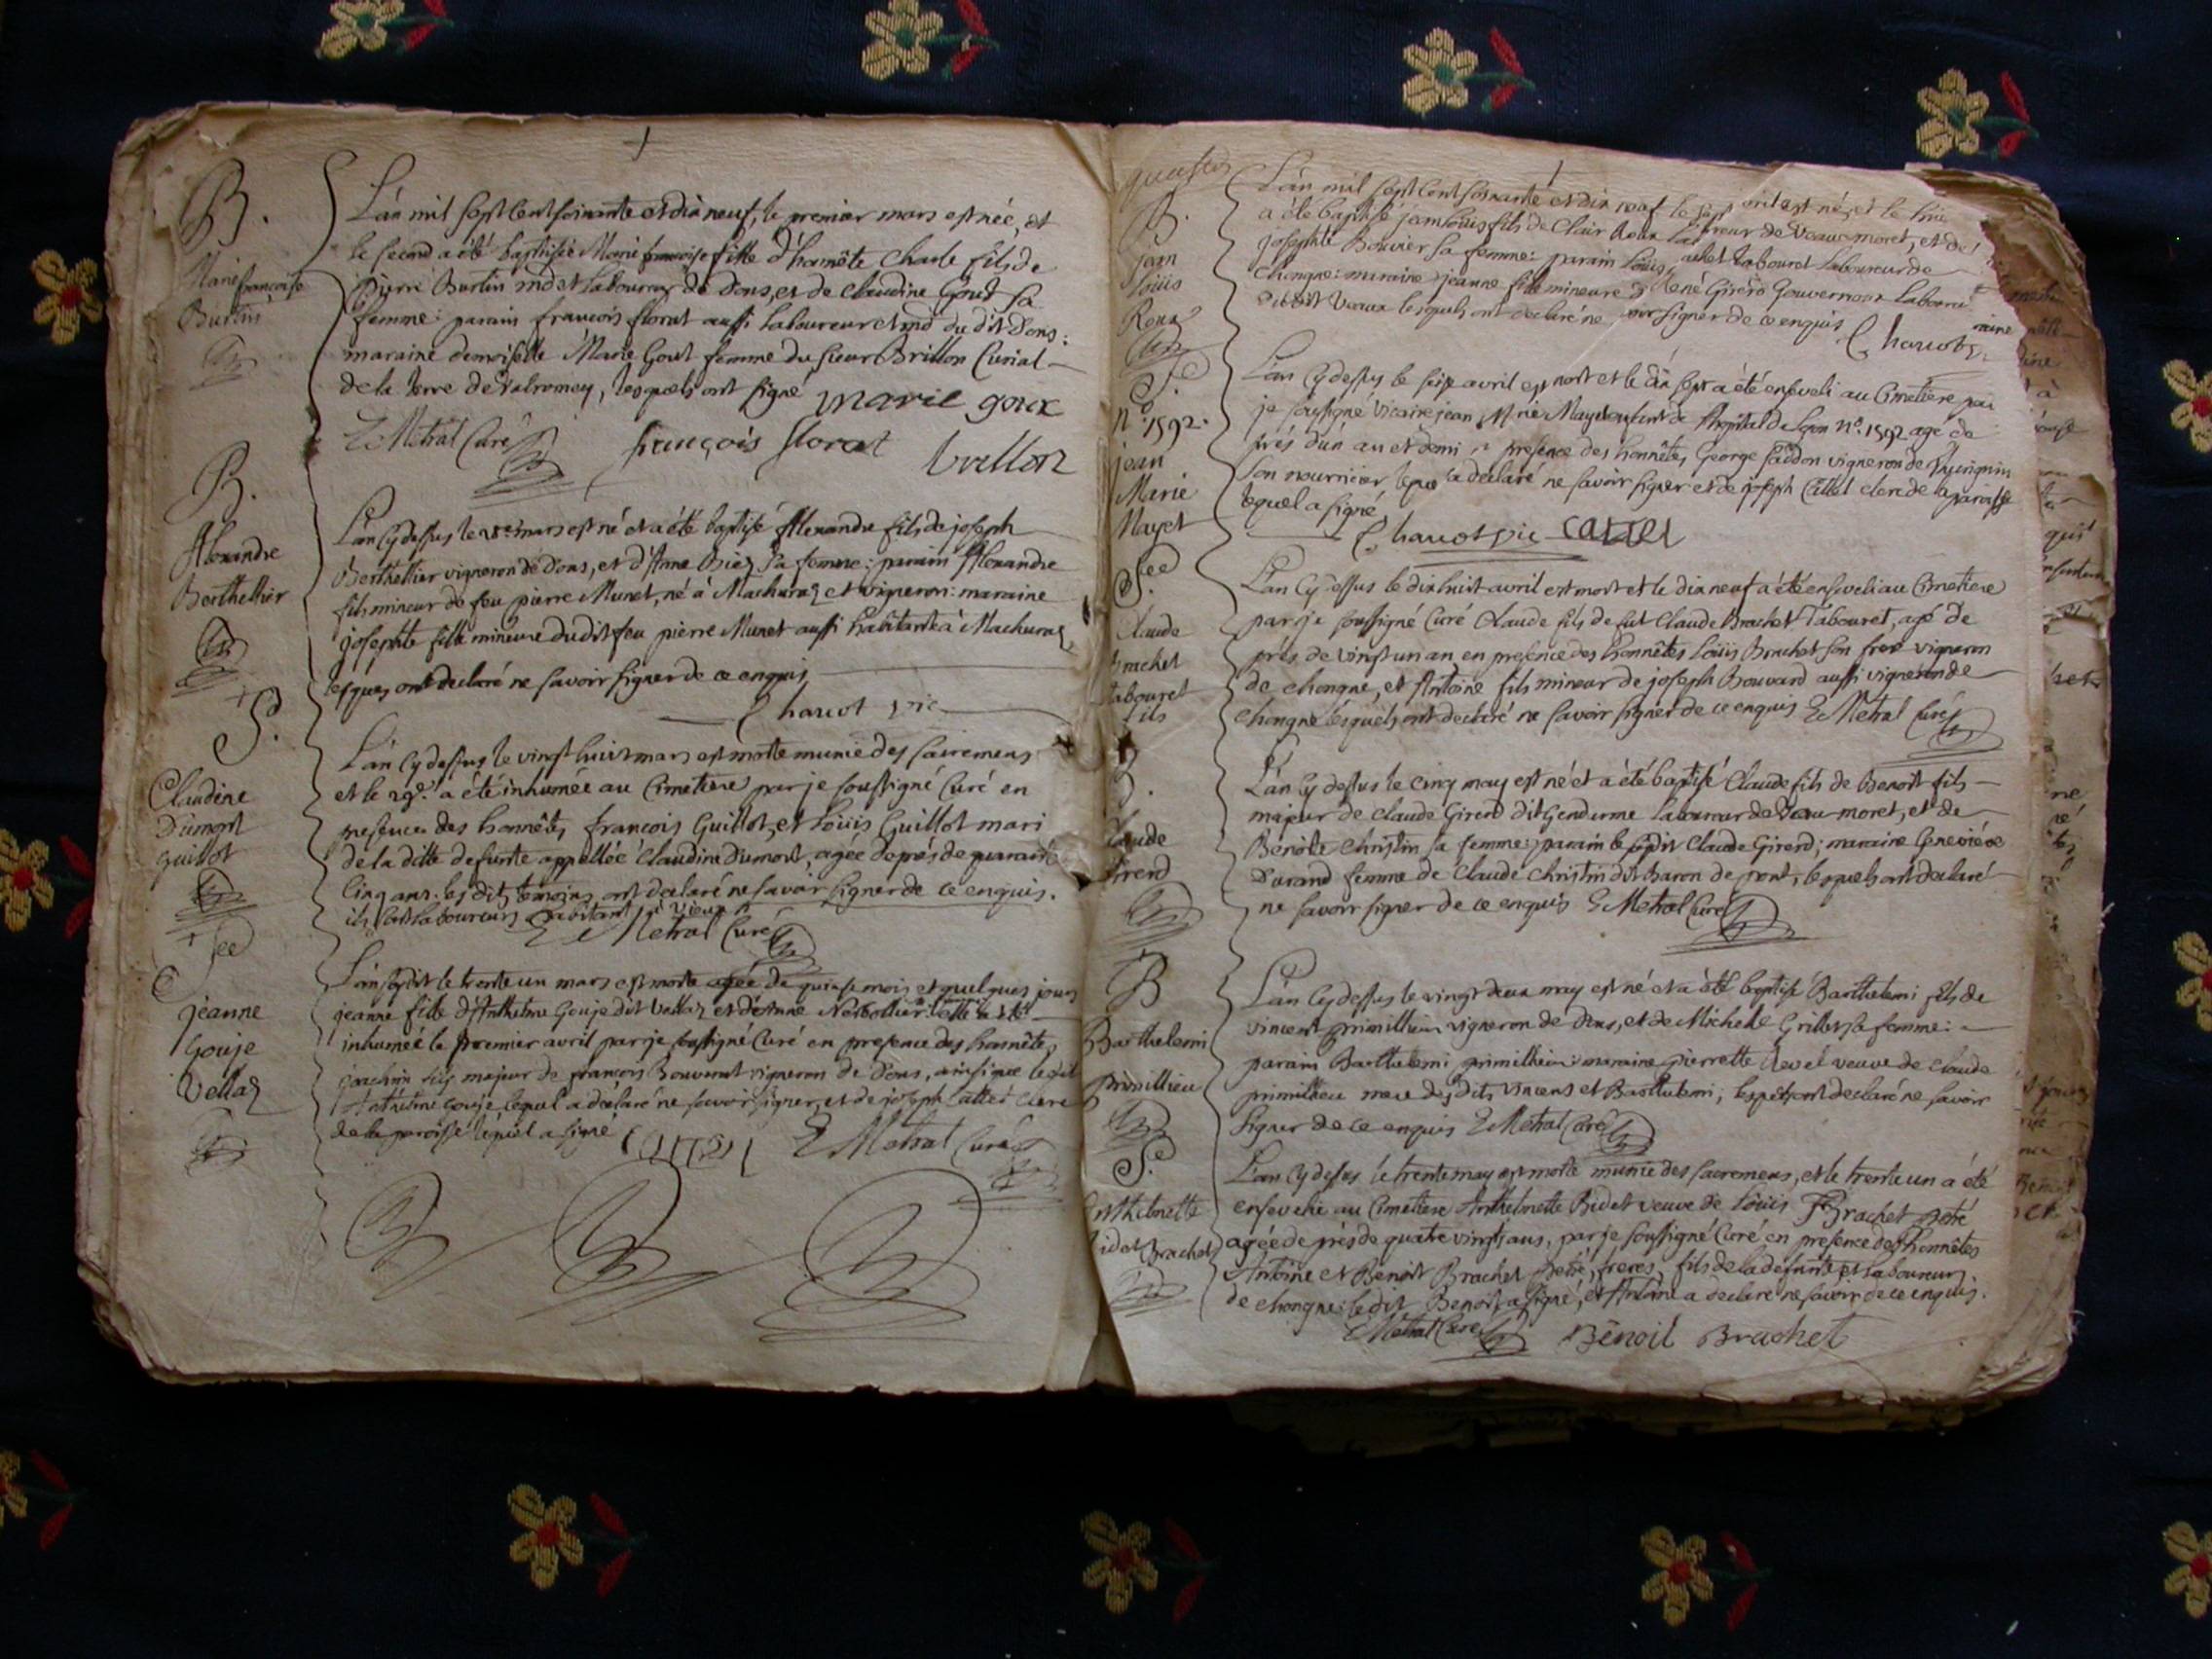 B.
Marie francoise
Burtin
L'an mil sept cent soixante et dix neuf, le premier mars est née, et
le second a été baptisée Marie francoise fille d'honnête Charle fils de
pierre Burtin md et laboureur de Dons, et de claudine Gout sa
femme: parain francois florat aussi laboureur et md du dit Dons:
maraine demoiselle Marie Gout femme du sieur Brillon Curial
de la terre de valromey, lesquels ont signé marie goux
E Metral Curé françois florat Brillon
B.
Alexandre
Berthellier
L'an cy dessus le 28e mars est né et a été baptisé Alexandre fils de joseph
Berthellier vigneron de Dons, et d'Anne Biez sa femme: parain Alexandre
fils mineur de feu pierre Munet, né à Machuraz et vigneron: maraine
josephte fille mineure du dit feu pierre Munet aussi habitante à Machuraz
lesquels ont declaré ne savoir signer de ce enquis
Charcot vic
S.
Claudine
Dumont
guillot
L'an cy dessus le vingt huit mars est morte munie des sacremens
et le 29e. a été inhumée au Cimetiere par je soussigné Curé en
presence des honnêtes francois Guillot, et Loüis Guillot mari
de la ditte defunte appellée Claudine Dumont, agée de près de quarante
Cinq ans. les dits temoins ont declaré ne savoir signer de ce enquis.
ils sont laboureurs habitant à vieux
E Metral Curé
See
jeanne
Gouje
Vellaz
L'an susdit le trente un mars est morte agée de quinse mois et quelques jours
jeanne fille d'Anthelme Gouje dit Vellaz et d'Anne Berthollier elle a été
inhumée le premier avril par je soussigné Curé en presence des honnêtes
joachim fils majeur de francois Bouverat vigneron de Dons, ainsi que le dit
Anthelme Gouje lequel a déclaré ne savoir signer, et de joseph Cattet clerc
de la paroisse lequel a signé CATTET E Metral Curé
B.
jean
loüis
Roux
L'an mil sept cent soixante et dix neuf le sept avril est né, et le huit
a été baptisé jean loüis fils de Clair Roux laboureur de Vaux moret, et de
josephte Bouvier sa femme: parain Loüis Brachet tabouret laboureur de
Chongne: maraine jeanne fille mineure de René Girerd Gouvernour laboureur
du dit Vaux lesquels ont declaré ne savoir signer de ce enquis Charcot vic
Se
no. 1592.
jean
Marie
Mayet
L'an cy dessus le seize avril est mort et le dix sept a été enseveli au Cimetiere par
je soussigné Vicaire jean Marie Mayet enfant de l'hopital de Lyon no. 1592 agé de
près d'un an et demi en presence des honnêtes George faddon vigneron de
son nourricier lequel a declaré ne savoir signer et de joseph Cattet clerc de la paroisse
lequel a signé
Charcot vic CATTET
See
Claude
Brachet
tabouret
fils
L'an cy dessus le dix huit avril est mort et le dix neuf a été enseveli au Cimetiere
par je soussigné Curé Claude fils de feu Claude Brachet Tabouret, agé de
près de vingt un an en presence des honnêtes Loüis Brachet son frere vigneron
de chongne, et Antoine fils mineur de joseph Bouvard aussi vigneron de
chongne lesquels ont declaré ne savoir signer de ce enquis E Metral Curé
B.
Claude
Girerd
L'an cy dessus le cinq may est né et a été baptisé Claude fils de Benoit fils
majeur de claude Girerd dit Gendarme laboureur de Vaux moret, et de
Benoite Christin sa femme; parain le susdit Claude Girerd; maraine Genevieve
Durand femme de Claude Christin dit Baron de pont, lesquels ont declaré
ne savoir signer de ce enquis E Metral Curé
B
Barthelemi
primillieu
L'an cy dessus le vingt deux may est né et a été baptisé Barthelemi fils de
vincent primillieu vigneron de Dons, et de Michelle Grillet sa femme:
parain Barthelemi primillieu: maraine pierrette Clevel veuve de Claude
primillieu mere des dits vincent et Barthelemi; lesquels ont declaré ne savoir
signer de ce enquis E Metral Curé
Se
Anthelmette
Bidet Brachet
L'an cy dessus le trente may est morte munie des sacremens, et le trente un a été
ensevelie au Cimetiere Anthelmette Bidet veuve de Loüis Brachet
agée de près de quatre vingts ans, par je soussigné Curé en presence des honnêtes
Antoine et Benoit Brachet freres, fils de la defunte et laboureurs
de chongne: le dit Benoit a signé, et Antoine a declaré ne savoir de ce enquis.
E Metral Curé Bênoit Brachet